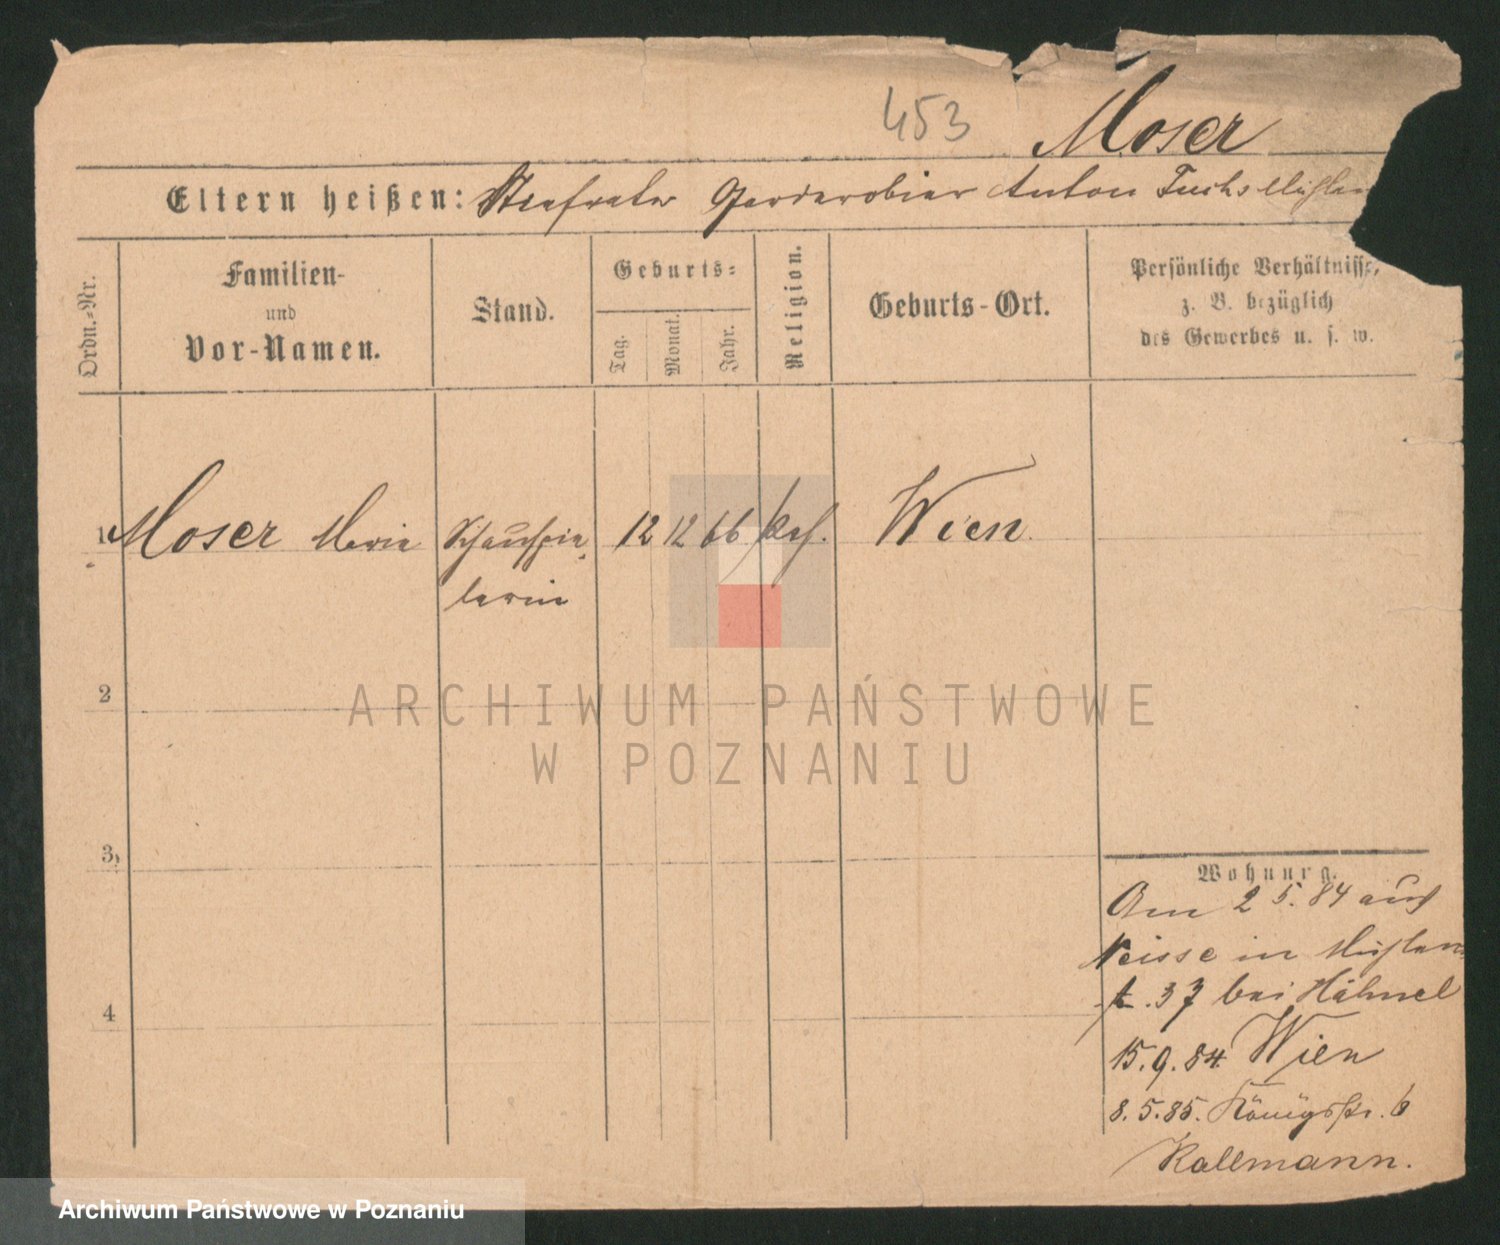 453
Moser
Eltern heißen: Garderobier Anton Fuchs
Ordn.-Nr.
Familien-
und
Vor-Namen.
Stand.
Geburts-
Tag.
Monat.
Jahr.
Religion.
Geburts-Ort.
Persönliche Verhältnisse,
z. B. bezüglich
des Gewerbes u. s. w.
1 Moser Maria Schauspie-
lerin
12 12 66 kath. Wien
2
3
4
ARCHIWUM PAŃSTWOWE
W POZNANIU
Wohnung.
Am 2 5. 84 aus
Neisse in Mühlen
st. 37 bei Hähnel
15. 9. 84. Wien
8. 5. 85. Königsstr. 6
Kallmann.
Archiwum Państwowe w Poznaniu